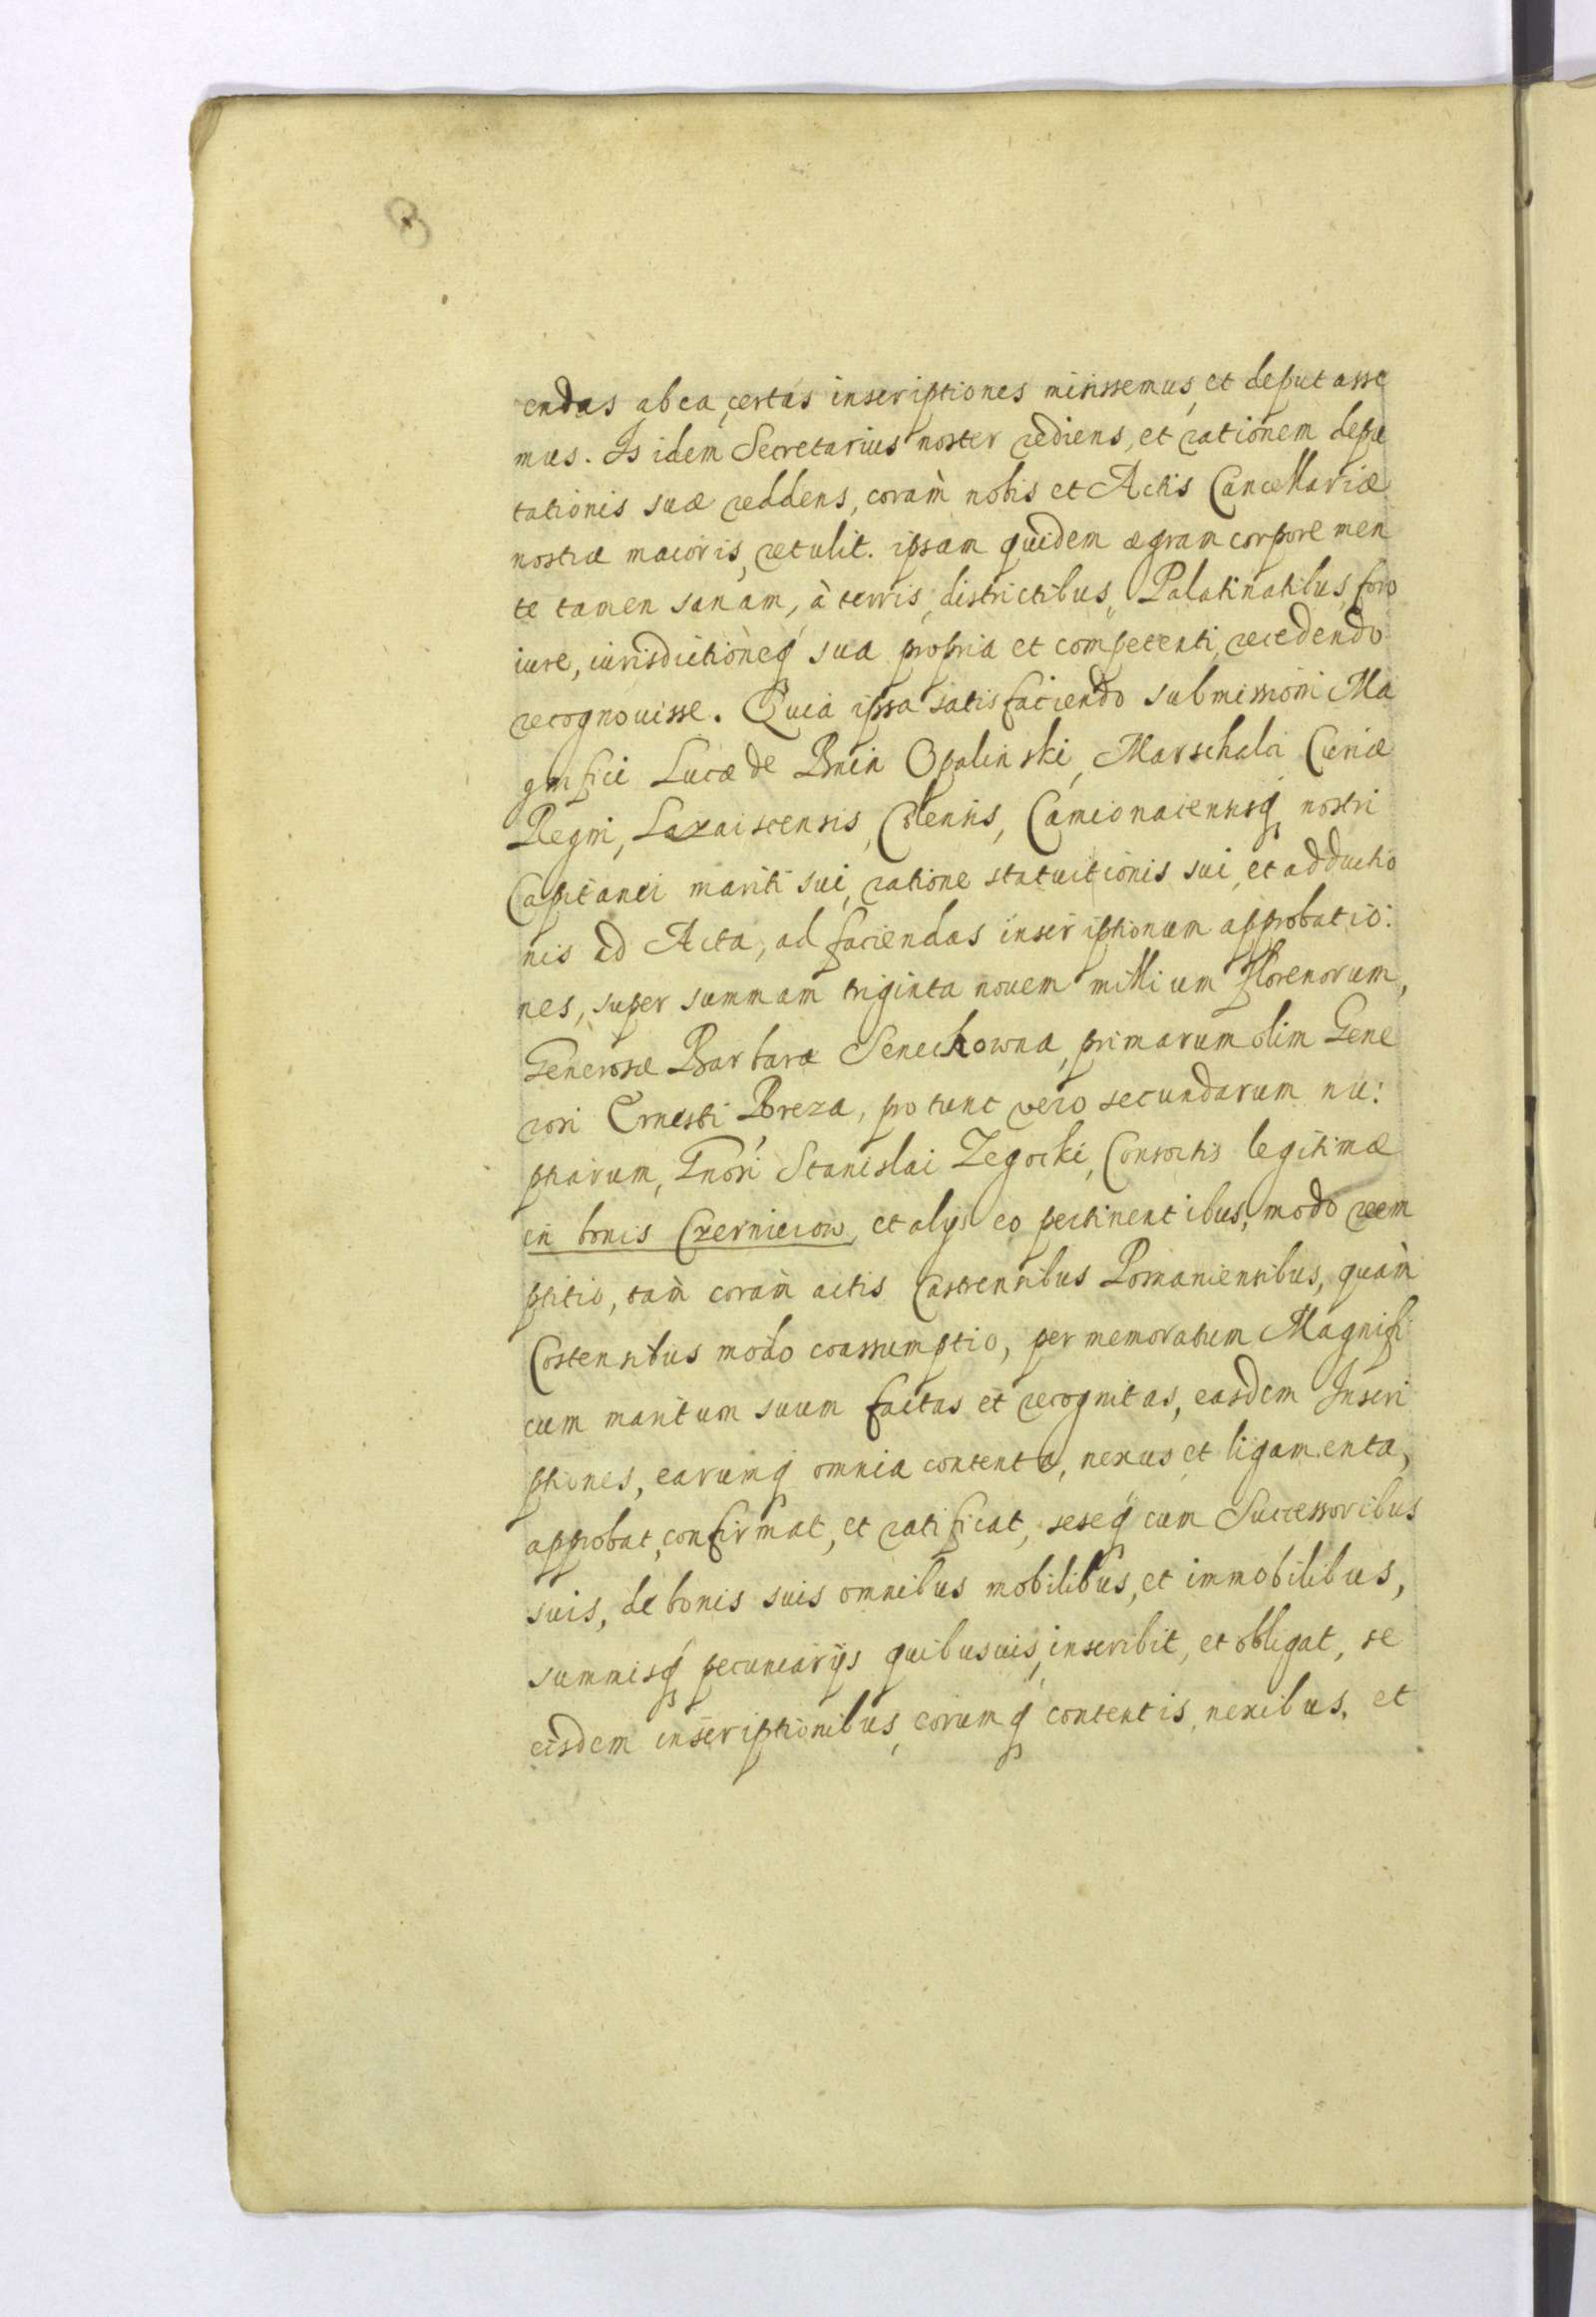 endas ab ea, certas inscriptiones misissemus, et deputasse
mus. Is idem Secretarius noster rediens, et rationem depu
tationis suæ reddens, coram̀ nobis et Actis Cancellariæ
nostræ maioris, retulit. ipsam quidem ægram corpore men
te tamen sanam, à terris, districtibus, Palatinatibus, foro
iure, iurisdictioneq́ sua propria et competenti, recedendo
recognouisse. Quia ipsa satisfaciendo submissioni Ma
gnifici Lucæ de Bnin Opalinski, Marschalci Curiæ
Regni, Laxaiscensis, Colensis, Camionacensisq́ nostri
Capitanei mariti sui, ratione statuitionis sui, et adductio
nis ad Acta, ad faciendas inscriptionum approbatio:
nes, super summam triginta nouem millium florenorum,
Generosæ Barbaræ Sienichowna, primarum olim Gene
rosi Ernesti Breza, pro tunc vero secundarum nu:
ptiarum, Gnosi Stanislai Zegocki, Consortis legitimæ
in bonis Czerniciow, et alijs eo pertinentibus, modo reem
ptitio, tam̀ coram̀ actis Castrensibus Posnaniensibus, quam̀
Costensibus modo coassumptio, per memoratum Magnifi
cum maritum suum factas et recognitas, easdem Inscri
ptiones, earumq́ omnia contenta, nexus et ligamenta,
approbat, confirmat, et ratificat, seseq́ cum Successoribus
suis, de bonis suis omnibus mobilibus, et immobilibus,
summisq́ pecuniarijs quibusuis, inscribit, et obligat, se
eisdem inscriptionibus, eorumq́ contentis, nexibus, et